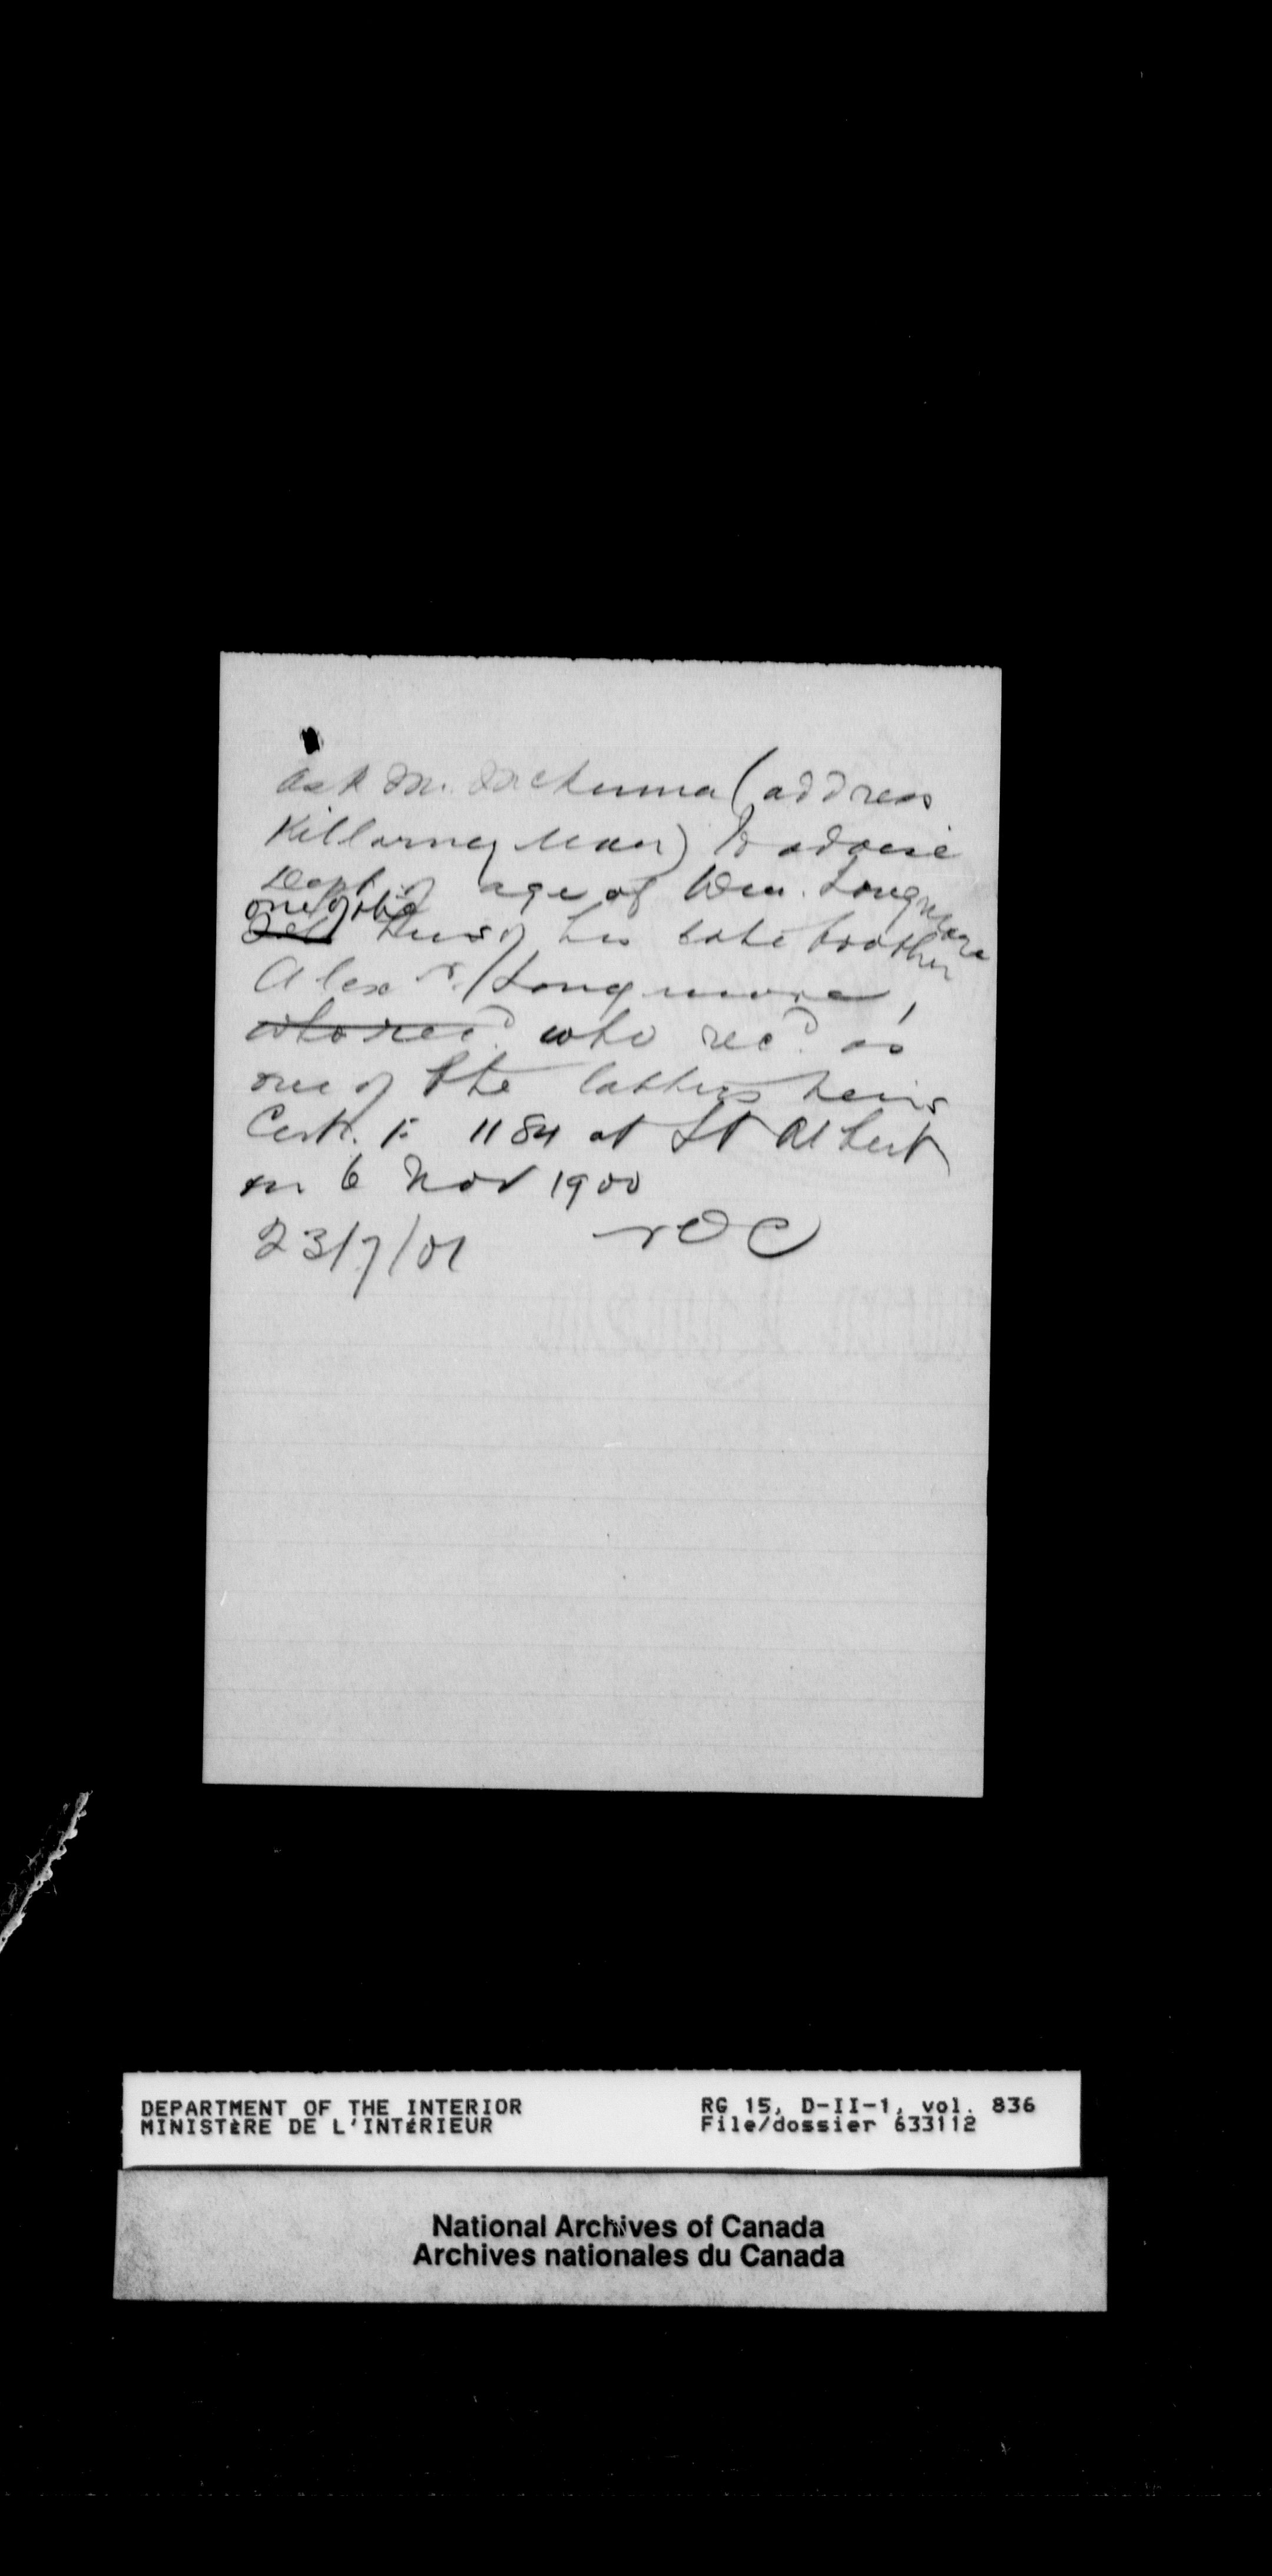 Ask Mr. McKenna (address
Killarney Man) to advise
Dept. of age of Wm. Longmore
one of the heirs of his late brother
Alexr. Longmore,
who rec'd. who rec'd. as
one of the latter's heirs
Cert. E 1184 at St Albert
on 6 Nov 1900
23/7/01 NOC
DEPARTMENT OF THE INTERIOR RG 15, D-II-1, vol. 836
MINISTÈRE DE L'INTÉRIEUR File/dossier 633112
National Archives of Canada
Archives nationales du Canada